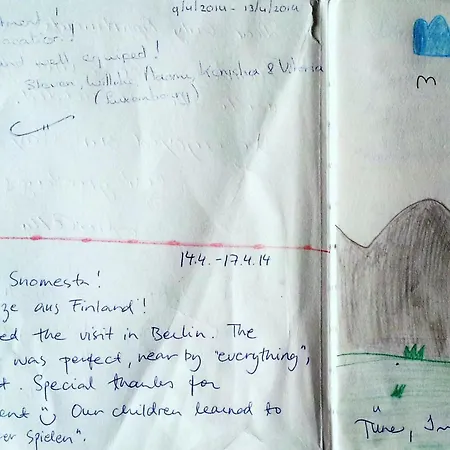 9/4/2014 - 13/4/2014
and well equiped!
Steven, Willeke
& Victoria
(Luxembourg)
14.4. - 17.4.14
Suomesta!
ze aus Finland!
ed the visit in Berlin. The
was perfect, near by "everything",
t. Special thanks for
ent Our children learned to
er Spielen".